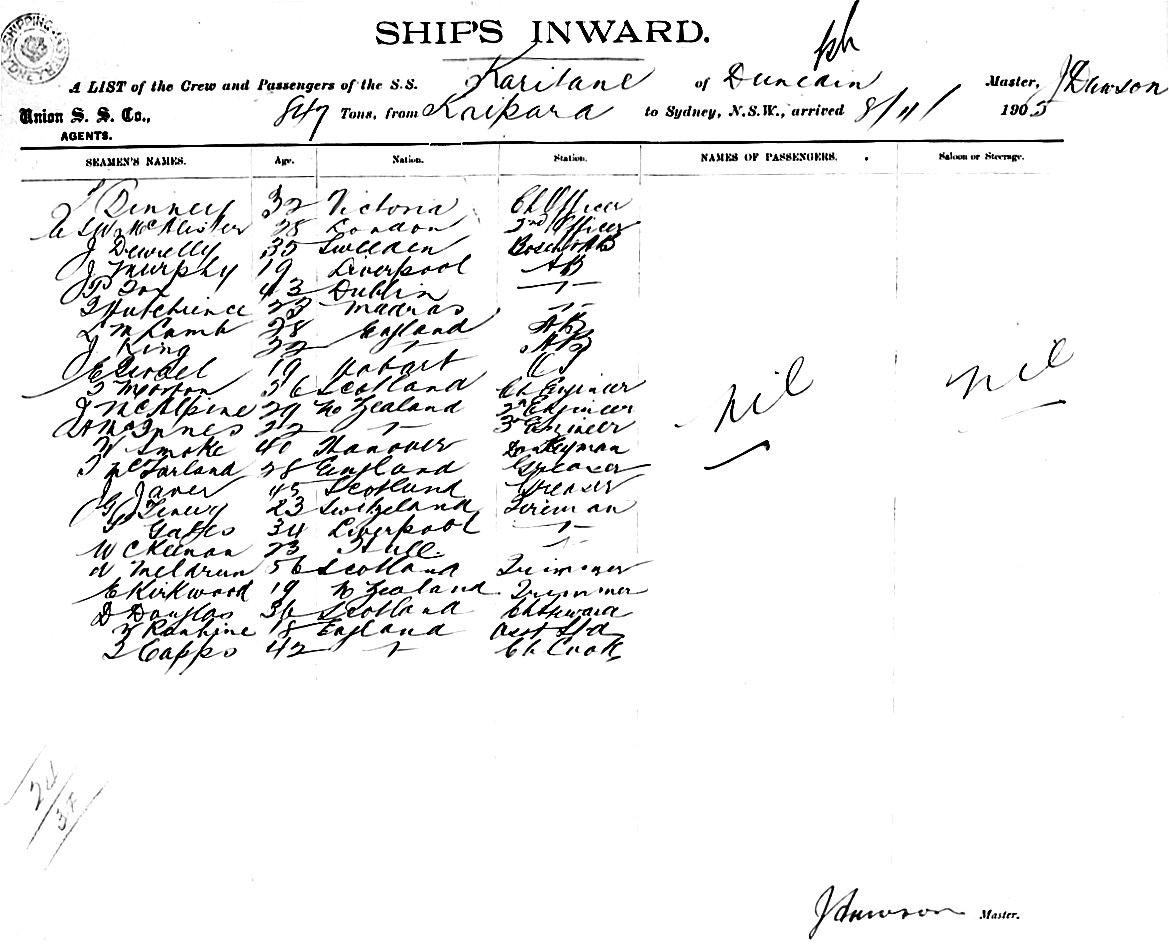 SHIP'S INWARD.
A LIST of the Crew and Passengers of the S.S. Karitane of Dunedin Master, J Dawson
Union S. S. Co., 847 Tons, from Kaipara to Sydney, N.S.W., arrived 8/11/ 1905
AGENTS.
SEAMEN'S NAMES. Age. Nation. Station. NAMES OF PASSENGERS. Saloon or Steerage.
Dinney 32 Victoria Ch Officer
McAlister 28 London 2nd Officer
J Dewelly 35 Sweeden AB
J Murphy 19 Liverpool AB
Fox 43 Dublin -"-
Hutchence 23 Madras -"-
L McLamb 28 England AB
J King 32 -"- AB
E 19 Hobart OS
T Morton 36 Scotland Ch Engineer
J McAlpine 29 N Zealand 2n Engineer
McInnes 22 -"- 3r Engineer
W Smoke 40 Hanover Donkeyman
T McFarland 28 England Greaser
J Javer 45 Scotland Greaser
G 23 Switzeland Fireman
Gaffes 34 Liverpool -"-
W C Keenan 23 Hull -"-
A Meldrun 56 Scotland Trimmer
E Kirkwood 19 N Zealand Trimmer
D Douglas 36 Scotland Ch Steward
Rankine 18 England Asst Std
Capps 42 -"- Ch Cook
Nil Nil
24/37
J Dawson Master.